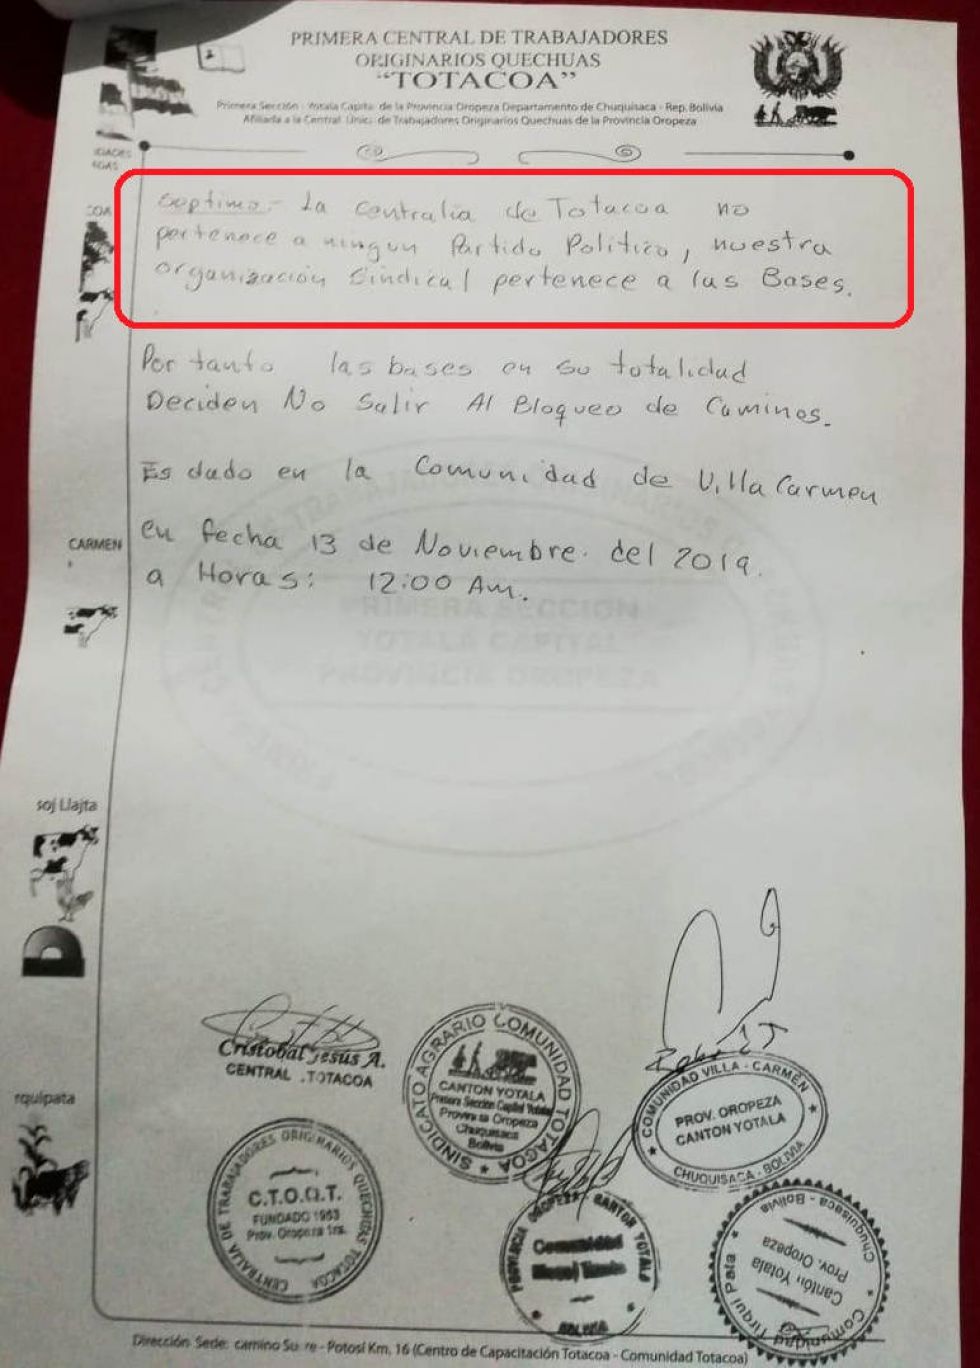 PRIMERA CENTRAL DE TRABAJADORES
ORIGINARIOS QUECHUAS
"TOTACOA"
Primera Sección - Yotala Capital de la Provincia Oropeza Departamento de Chuquisaca - Rep. Bolivia
Afiliada a la Central Unica de Trabajadores Originarios Quechuas de la Provincia Oropeza
septimo.- La Centralia de Totacoa no
pertenece a ningun Partido Politico, nuestra
organización Sindical pertenece a las Bases.
Por tanto las bases en su totalidad
Deciden No Salir Al Bloqueo de Caminos.
Es dado en la Comunidad de Villa Carmen
en fecha 13 de Noviembre. del 2019.
a Horas: 12:00 Am.
CARMEN
PRIMERA SECCION
YOTALA CAPITAL
PROVINCIA OROPEZA
soj Llajta
D
rquipata
Cristobal Jesus A.
CENTRAL .TOTACOA
SINDICATO AGRARIO COMUNIDAD TOTACOA
CANTON YOTALA
Primera Sección Capital Yotala
Provincia Oropeza
Chuquisaca
Bolivia
COMUNIDAD VILLA - CARMEN
PROV. OROPEZA
CANTON YOTALA
CHUQUISACA - BOLIVIA
CENTRALIA DE TRABAJADORES ORIGINARIOS QUECHUAS TOTACOA
C.T.O.Q.T.
FUNDADO 1953
Prov. Oropeza 1ra.
PROVINCIA OROPEZA CANTON YOTALA
Comunidad
BOLIVIA
Comunidad Tirqui Pata
Cantón Yotala
Prov. Oropeza
Chuquisaca - Bolivia
Dirección Sede: camino Su re - Potosí Km. 16 (Centro de Capacitación Totacoa - Comunidad Totacoa)